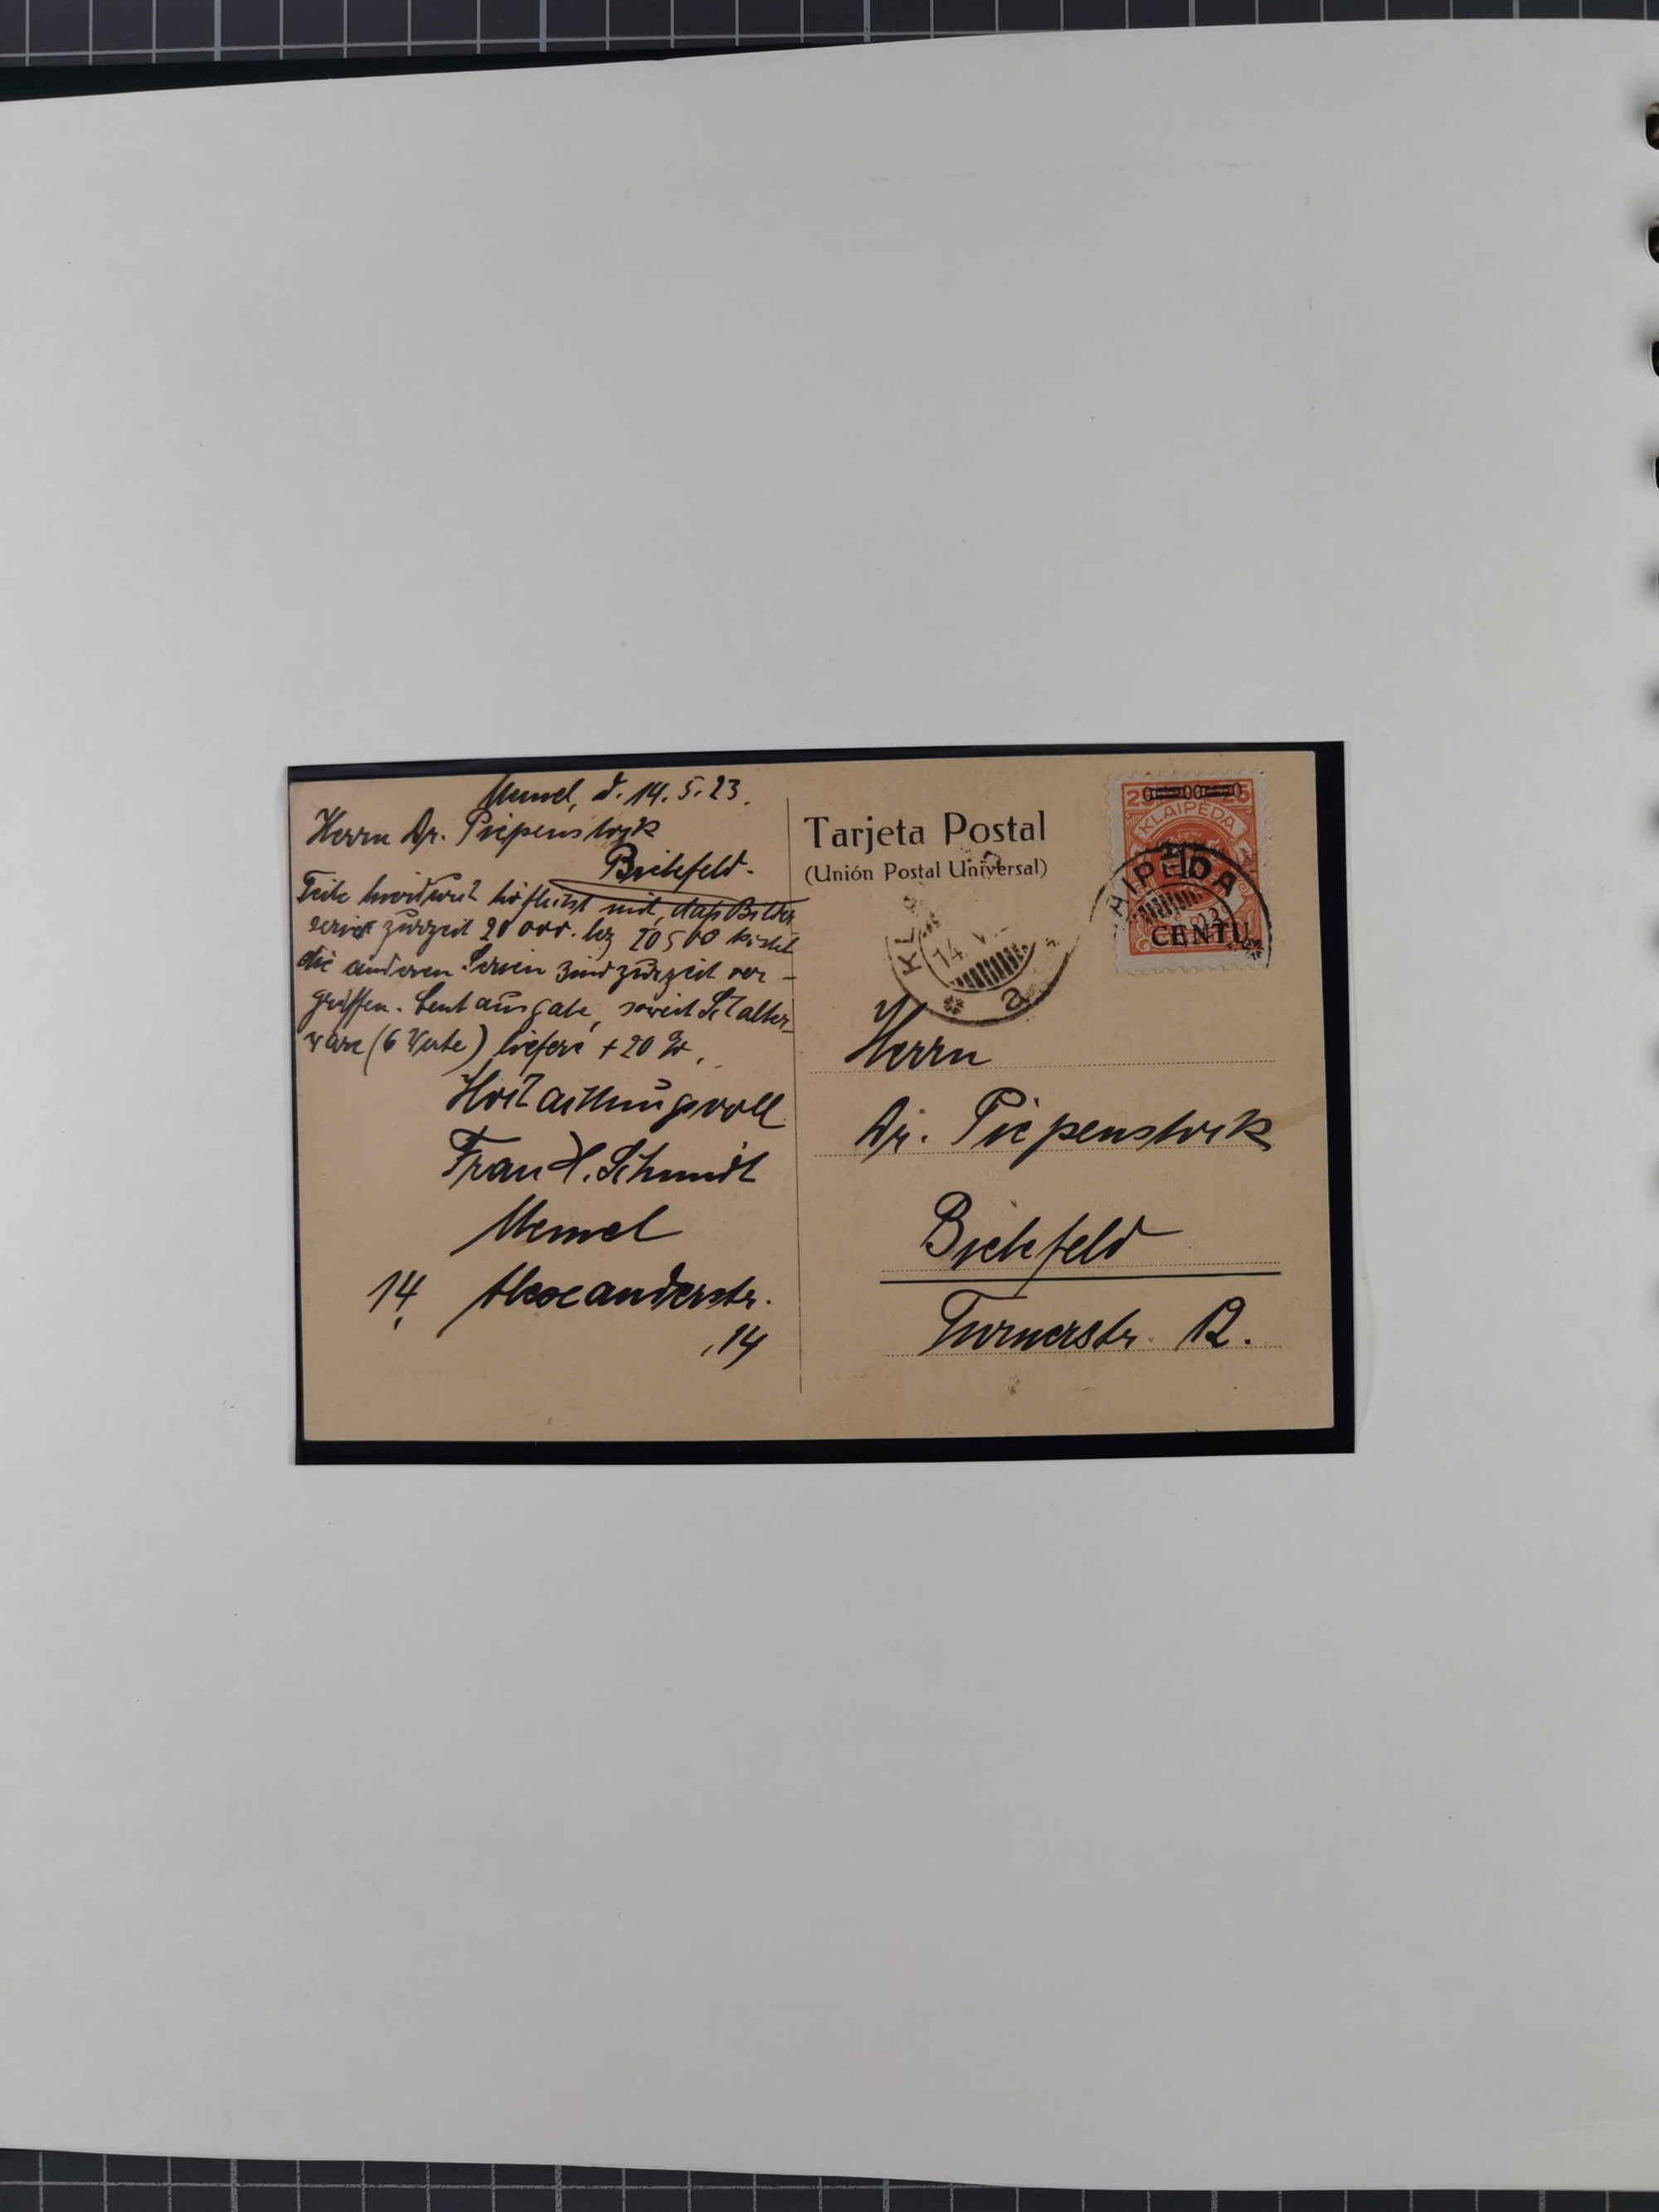 Memel, d. 14.5.23.
Herrn Dr. Piepenstock
Bielefeld.
Teile hierdurch höflichst mit, daß Bilder
serien zurzeit 20 000. bez 20500 kostet
die anderen Serien sind zurzeit ver-
griffen. Centausgabe, soweit Schalter-
ware (6 Werte) liefere + 20
Hochachtungsvoll
Frau H. Schmidt
Memel
14, Alexanderstr.
14
Tarjeta Postal
(Unión Postal Universal)
25 25
KLAIPĖDA
10
CENTU
AIPĖDA
23
KL
14. V
a
Herrn
Dr. Piepenstock
Bielefeld
Turnerstr. 12.